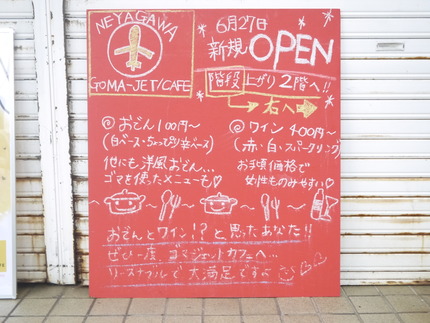 NEYAGAWA
GOMA-JET/CAFE
6月27日
新規OPEN
階段 上がり2階へ!!
右へ
◎おでん100円〜
(白ベース・ちょっぴり辛ベース)
他にも洋風おでん...
ゴマを使ったメニューも♡
◎ワイン400円〜
(赤・白・スパークリング)
お手頃価格で
女性ものみやすい♡
おでんとワイン!?と思ったあなた!!
ぜひ一度、ゴマジェットカフェへ...
リーズナブルで大満足ですよ